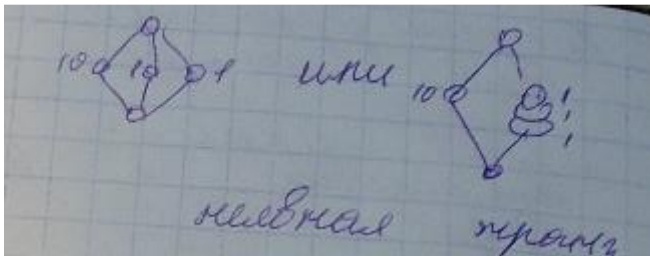 10 1 1 или 10 1 1 1
неявная транз